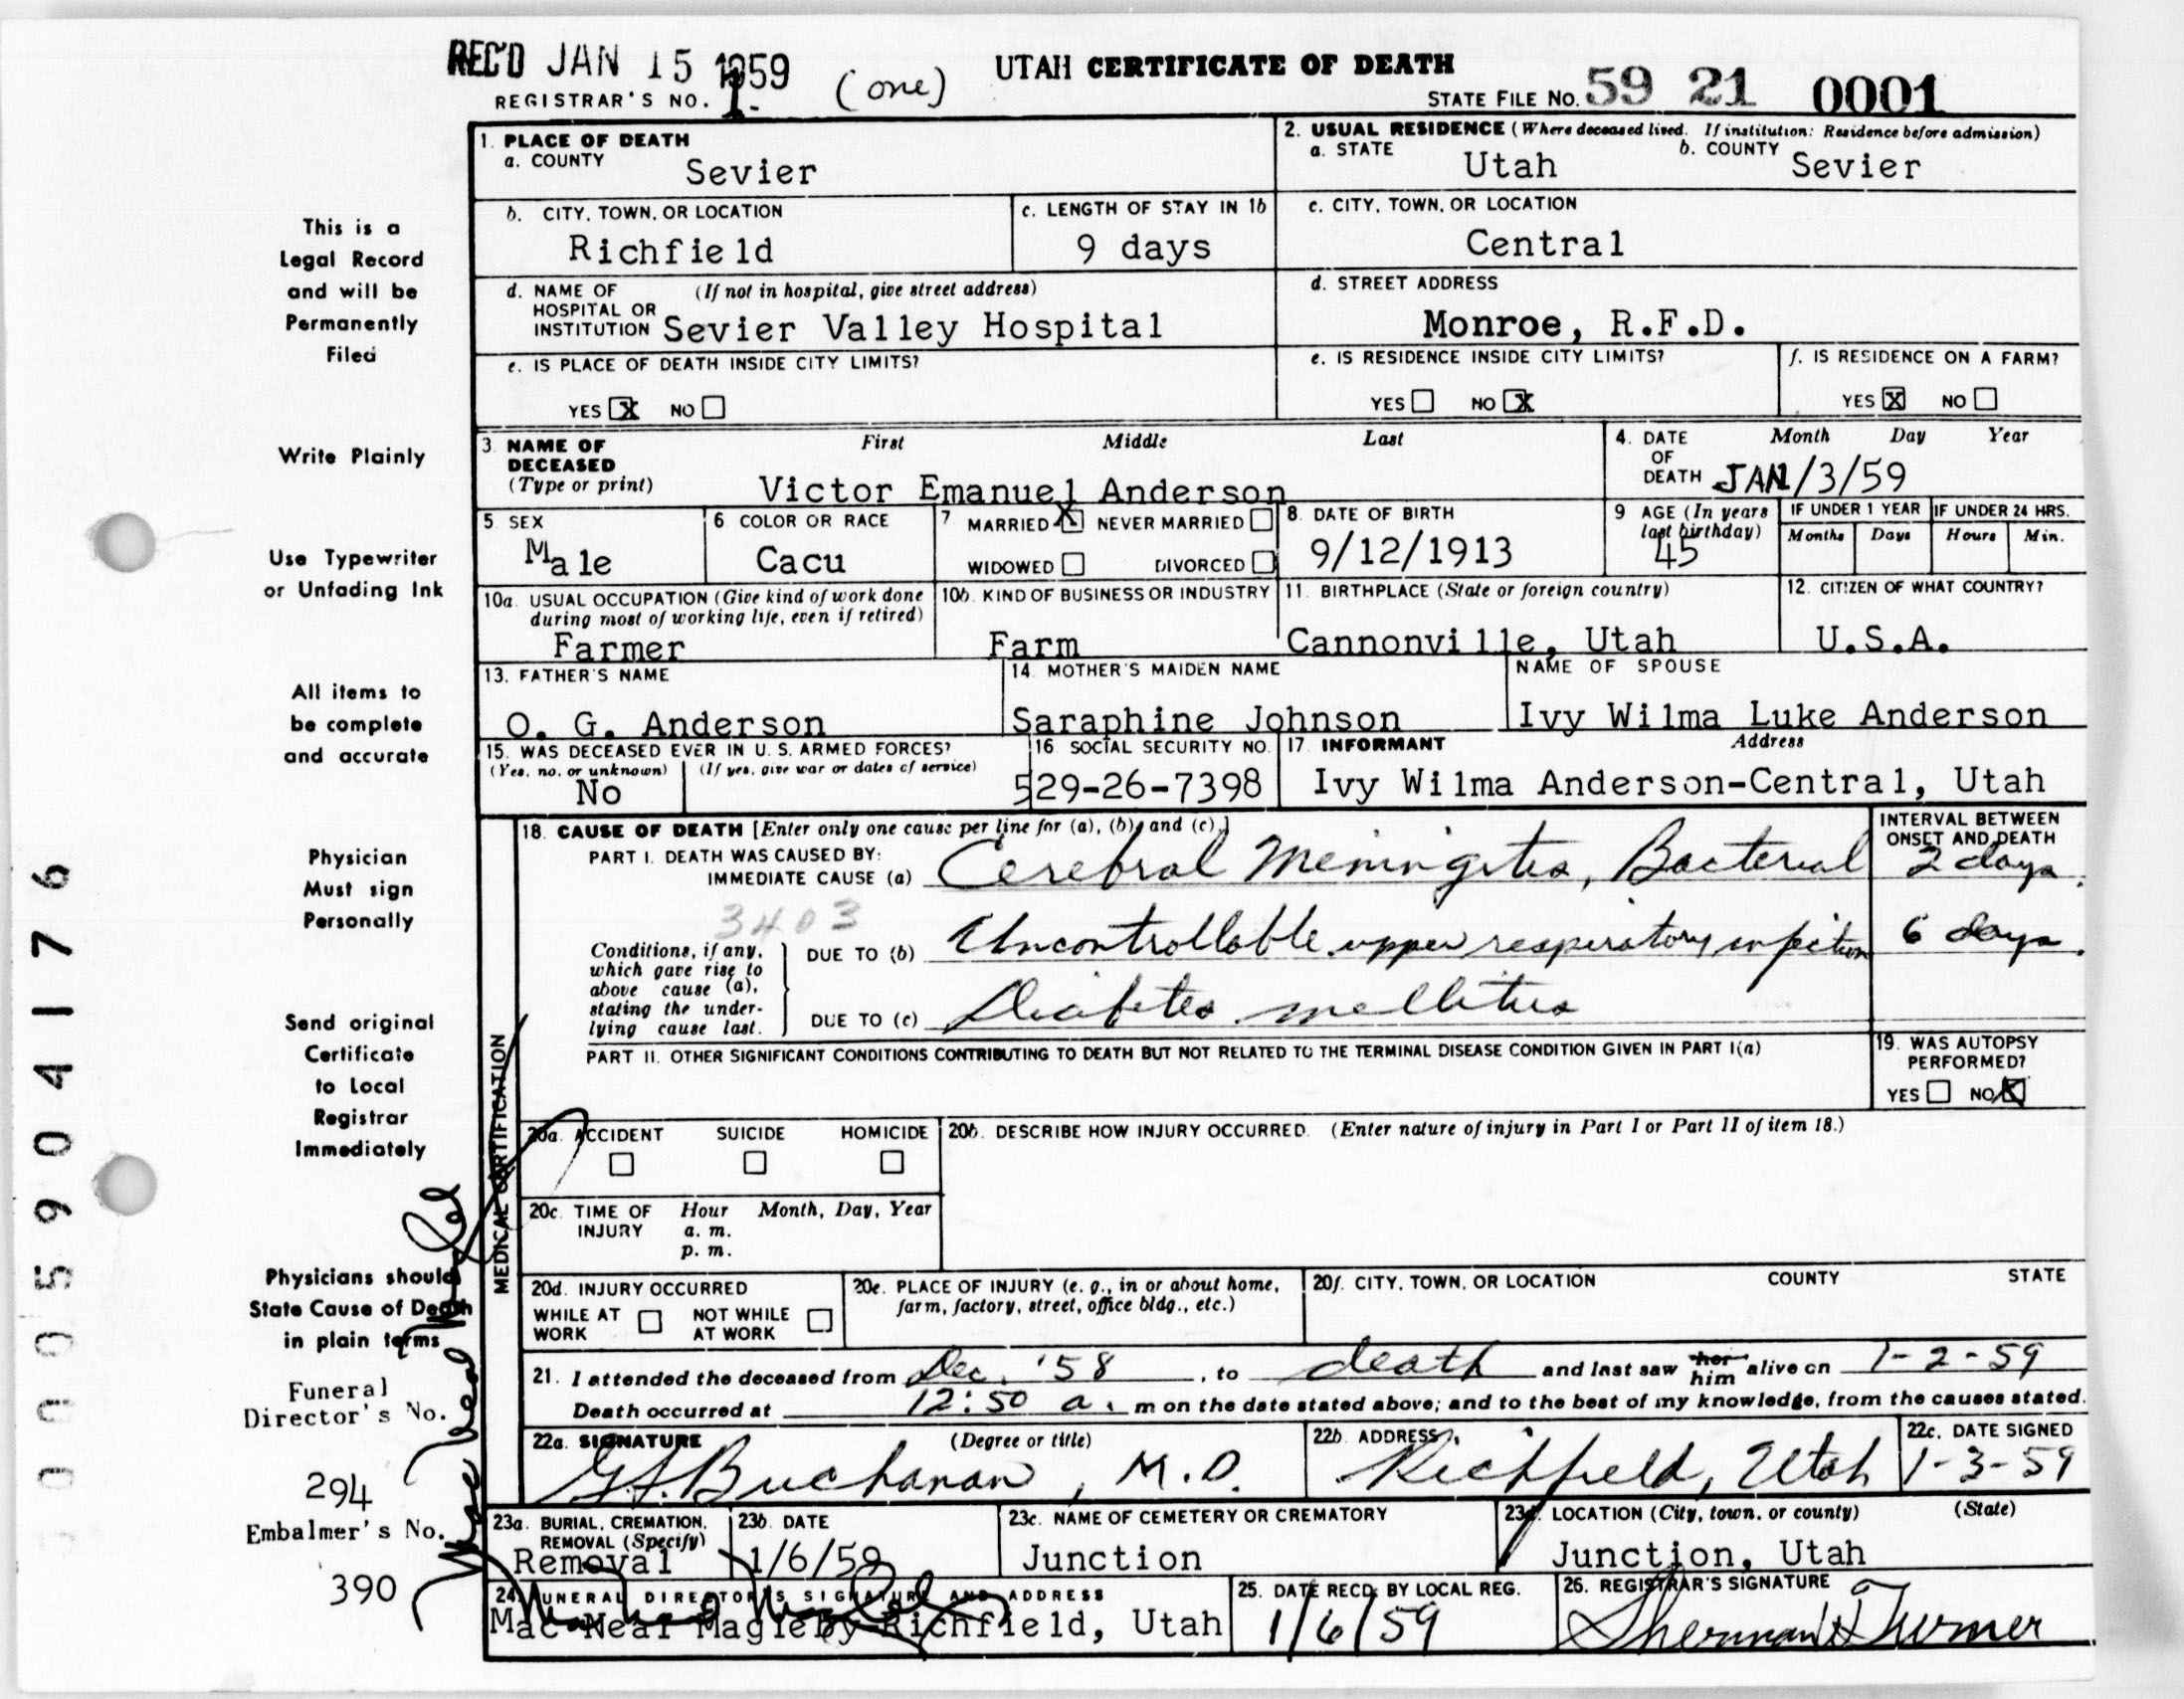 REC'D JAN 15 1959
REGISTRAR'S NO. 1. (one)
UTAH CERTIFICATE OF DEATH
STATE FILE NO. 59 21 0001
This is a
Legal Record
and will be
Permanently
Filed
Write Plainly
Use Typewriter
or Unfading Ink
All items to
be complete
and accurate
Physician
Must sign
Personally
Send original
Certificate
to Local
Registrar
Immediately
Physicians should
State Cause of Death
in plain terms
Funeral
Director's No.
294
Embalmer's No.
390
0005904176
1. PLACE OF DEATH
a. COUNTY
Sevier
2. USUAL RESIDENCE (Where deceased lived. If institution: Residence before admission)
a. STATE Utah b. COUNTY Sevier
b. CITY, TOWN, OR LOCATION
Richfield
c. LENGTH OF STAY IN 1b
9 days
c. CITY, TOWN, OR LOCATION
Central
d. NAME OF (If not in hospital, give street address)
HOSPITAL OR
INSTITUTION Sevier Valley Hospital
d. STREET ADDRESS
Monroe, R.F.D.
e. IS PLACE OF DEATH INSIDE CITY LIMITS?
YES X NO
e. IS RESIDENCE INSIDE CITY LIMITS?
YES NO X
f. IS RESIDENCE ON A FARM?
YES X NO
3. NAME OF DECEASED First Middle Last
(Type or print) Victor Emanuel Anderson
4. DATE OF DEATH Month Day Year
JAN/3/59
5. SEX
Male
6 COLOR OR RACE
Cacu
7 MARRIED X NEVER MARRIED
WIDOWED DIVORCED
8. DATE OF BIRTH
9/12/1913
9 AGE (In years last birthday)
45
IF UNDER 1 YEAR IF UNDER 24 HRS.
Months Days Hours Min.
10a. USUAL OCCUPATION (Give kind of work done
during most of working life, even if retired)
Farmer
10b. KIND OF BUSINESS OR INDUSTRY
Farm
11. BIRTHPLACE (State or foreign country)
Cannonville, Utah
12. CITIZEN OF WHAT COUNTRY?
U.S.A.
13. FATHER'S NAME
O. G. Anderson
14. MOTHER'S MAIDEN NAME
Saraphine Johnson
NAME OF SPOUSE
Ivy Wilma Luke Anderson
15. WAS DECEASED EVER IN U.S. ARMED FORCES?
(Yes, no, or unknown) (If yes, give war or dates of service)
No
16. SOCIAL SECURITY NO.
529-26-7398
17. INFORMANT Address
Ivy Wilma Anderson-Central, Utah
MEDICAL CERTIFICATION
18. CAUSE OF DEATH [Enter only one cause per line for (a), (b), and (c).]
INTERVAL BETWEEN
ONSET AND DEATH
PART I. DEATH WAS CAUSED BY:
IMMEDIATE CAUSE (a) Cerebral Meningitis, Bacterial 2 days.
3403
Conditions, if any,
which gave rise to
above cause (a),
stating the under-
lying cause last.
DUE TO (b) Uncontrollable upper respiratory infection 6 days.
DUE TO (c) Diabetes mellitus
PART II. OTHER SIGNIFICANT CONDITIONS CONTRIBUTING TO DEATH BUT NOT RELATED TO THE TERMINAL DISEASE CONDITION GIVEN IN PART I(a)
19. WAS AUTOPSY
PERFORMED?
YES NO X
20a. ACCIDENT SUICIDE HOMICIDE
20b. DESCRIBE HOW INJURY OCCURRED. (Enter nature of injury in Part I or Part II of item 18.)
20c. TIME OF INJURY Hour Month, Day, Year
a. m.
p. m.
20d. INJURY OCCURRED
WHILE AT WORK NOT WHILE AT WORK
20e. PLACE OF INJURY (e. g., in or about home,
farm, factory, street, office bldg., etc.)
20f. CITY, TOWN, OR LOCATION COUNTY STATE
21. I attended the deceased from Dec. '58, to death and last saw her him alive on 1-2-59
Death occurred at 12:50 a. m on the date stated above; and to the best of my knowledge, from the causes stated.
22a. SIGNATURE (Degree or title)
G.S. Buchanan, M.D.
22b. ADDRESS
Richfield, Utah
22c. DATE SIGNED
1-3-59
23a. BURIAL, CREMATION,
REMOVAL (Specify)
Removal
23b. DATE
1/6/59
23c. NAME OF CEMETERY OR CREMATORY
Junction
23d. LOCATION (City, town, or county) (State)
Junction, Utah
24. FUNERAL DIRECTOR'S SIGNATURE AND ADDRESS
Mac Neal Magleby Richfield, Utah
25. DATE RECD. BY LOCAL REG.
1/6/59
26. REGISTRAR'S SIGNATURE
Sherman H Turner